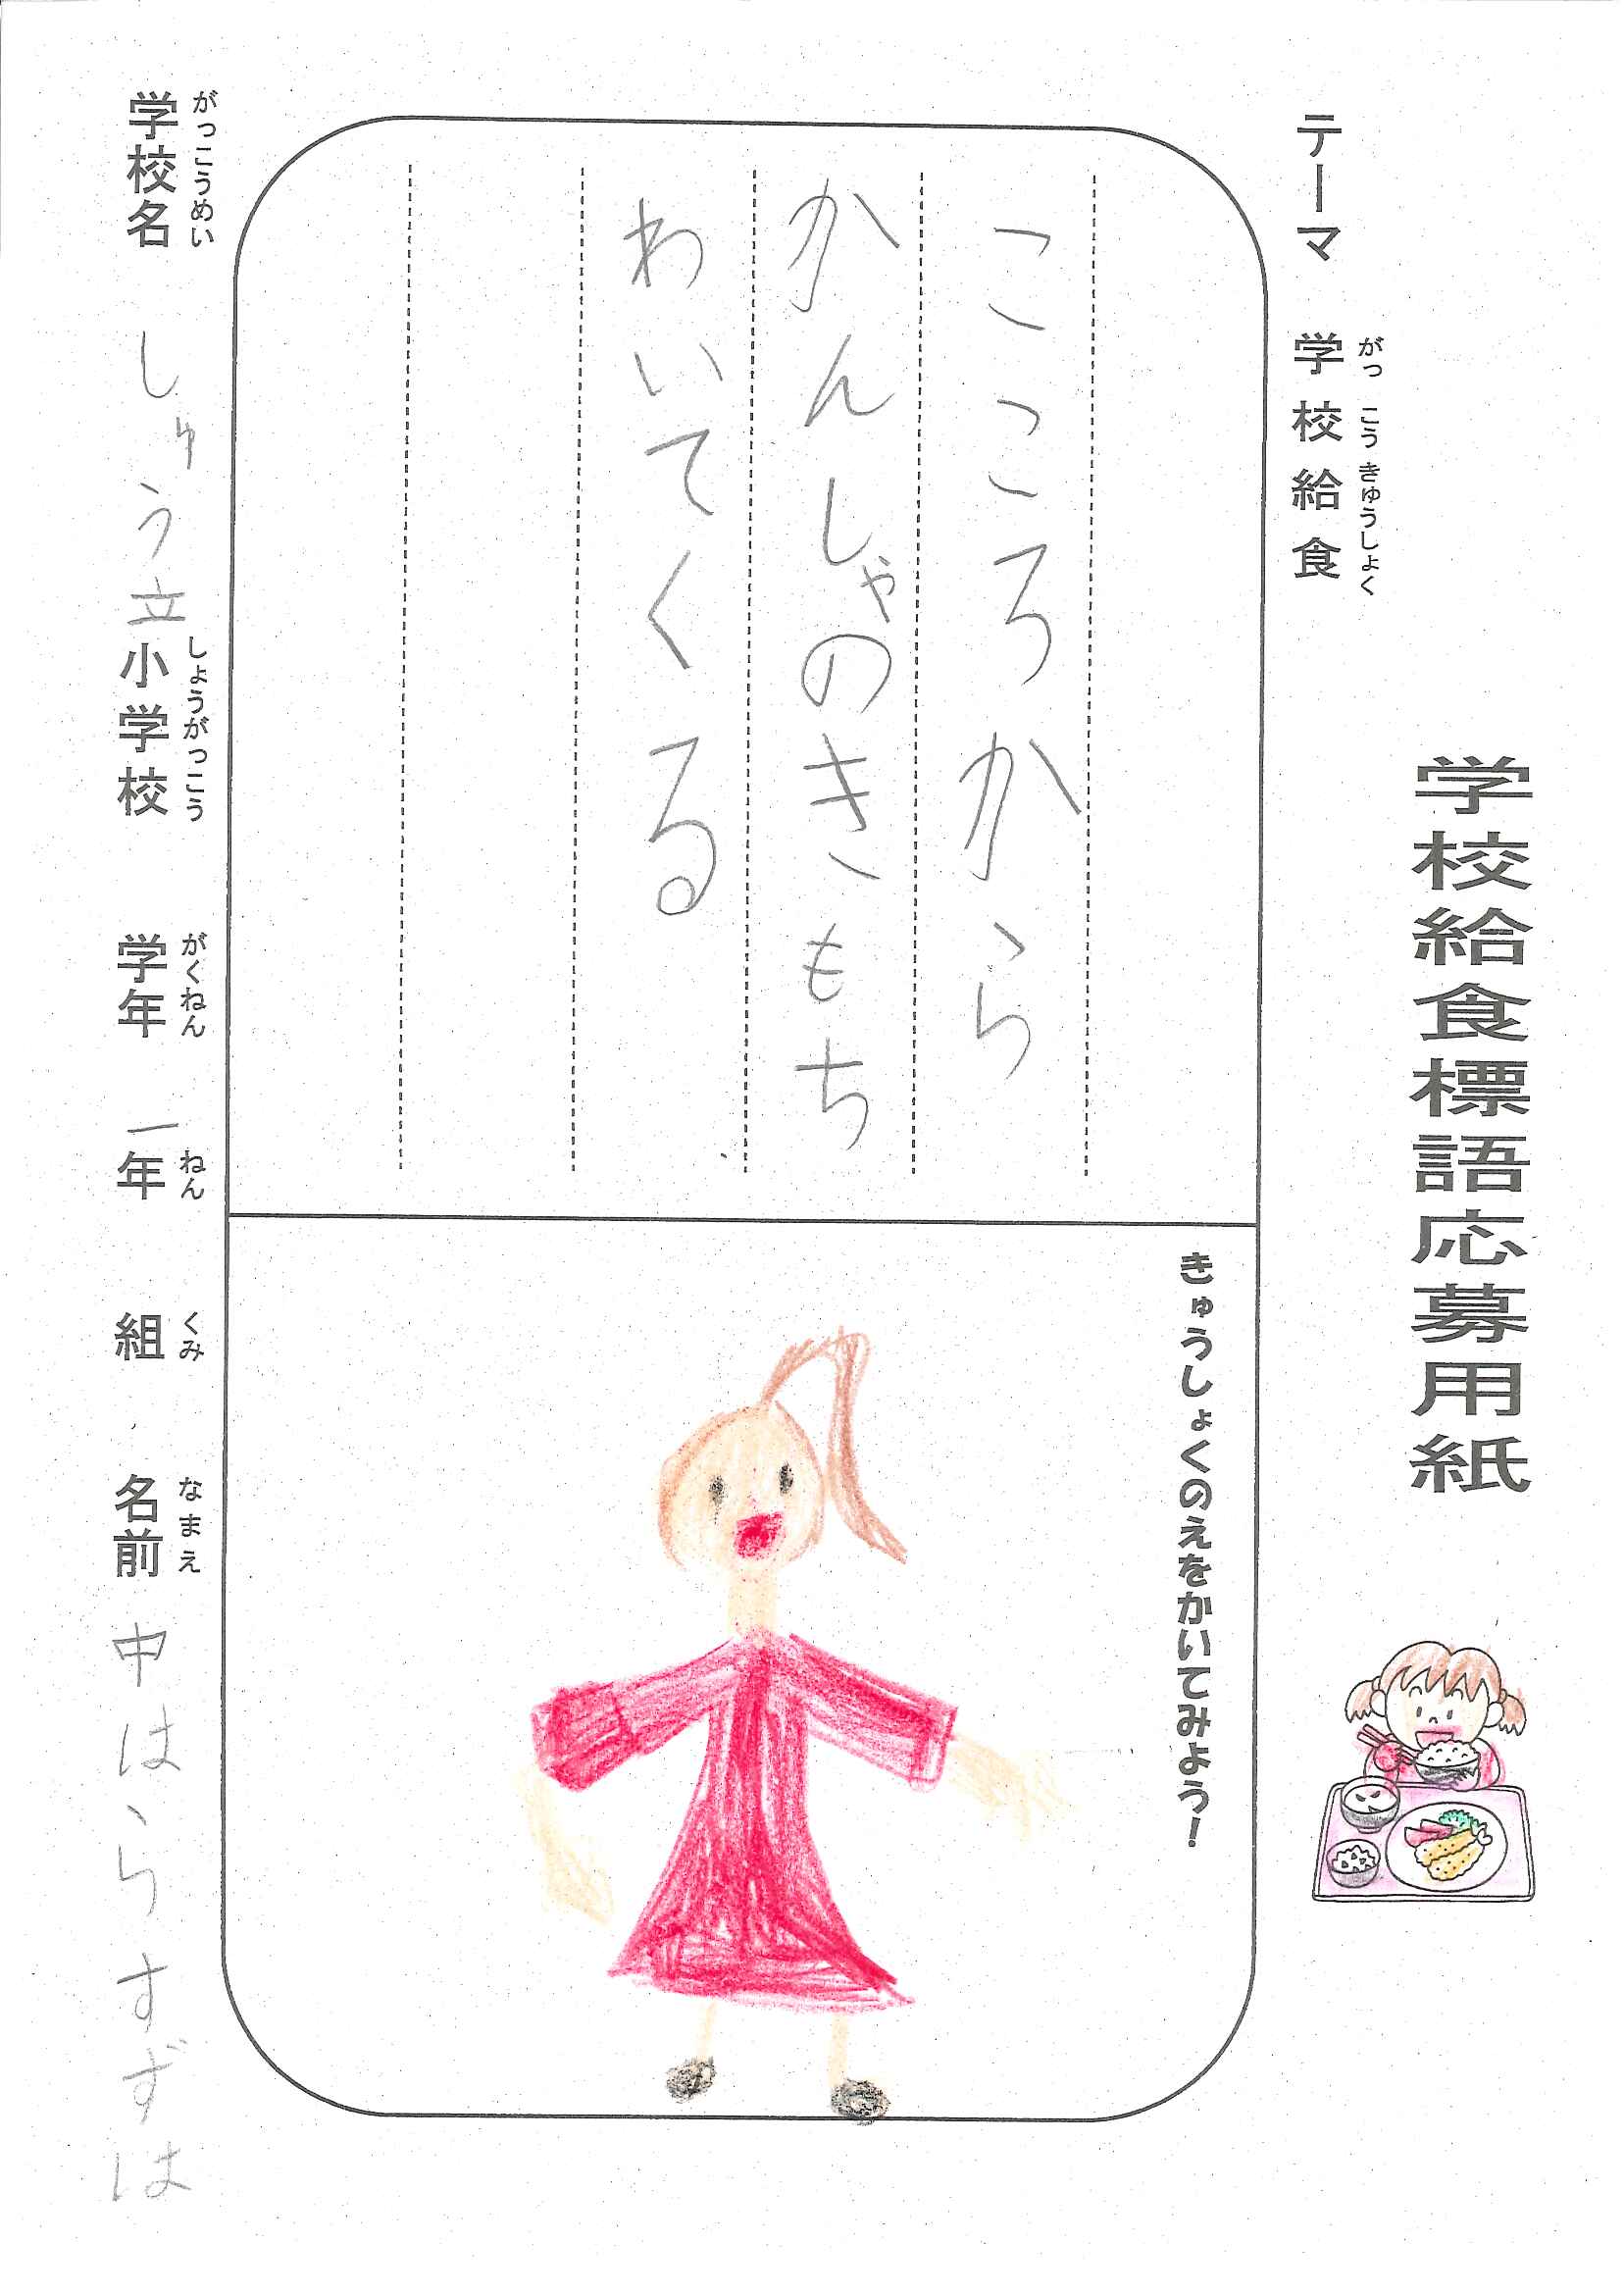 学校給食標語応募用紙
テーマ 学校給食
がっこうきゅうしょく
こころから
かんしゃのきもち
わいてくる
きゅうしょくのえをかいてみよう！
がっこうめい しょうがっこう がくねん ねん くみ なまえ
学校名 しゅう立小学校 学年 一年 組 名前 中はらすずは